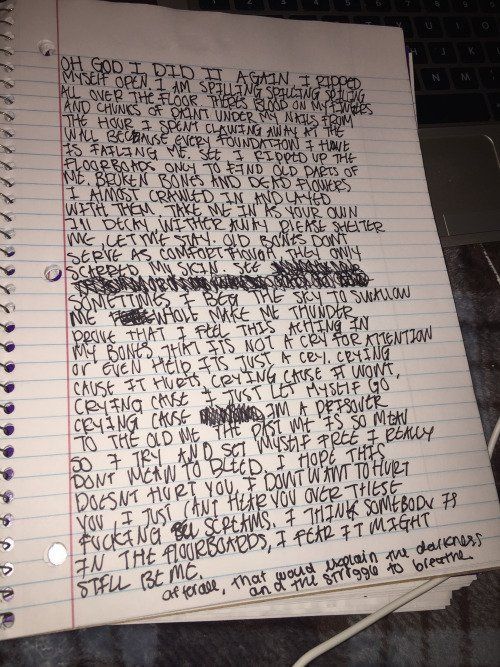 OH GOD I DID IT AGAIN I RIPPED
MYSELF OPEN I AM SPILLING SPILLING SPILLING
ALL OVER THE FLOOR THERES BLOOD ON MY FINGERS
AND CHUNKS OF PAINT UNDER MY NAILS FROM
THE HOUR I SPENT CLAWING AWAY AT THE
WALL BECAUSE EVERY FOUNDATION I HAVE
IS FAILING ME. SEE I RIPPED UP THE
FLOORBOARDS ONLY TO FIND OLD PARTS OF
ME, BROKEN BONES AND DEAD FLOWERS
I ALMOST CRAWLED IN AND LAYED
WITH THEM. TAKE ME IN AS YOUR OWN
ILL DECAY, WITHER AWAY PLEASE SHELTER
ME, LET ME STAY. OLD BONES DONT
SERVE AS COMFORT THOUGH THEY ONLY
SCARRED MY SKIN. SEE
SOMETIMES I BEG THE SKY TO SWALLOW
ME WHOLE MAKE ME THUNDER
PROVE THAT I FEEL THIS ACHING IN
MY BONES THAT ITS NOT A CRY FOR ATTENTION
OR EVEN HELP ITS JUST A CRY. CRYING
CAUSE IT HURTS CRYING CAUSE IT WONT,
CRYING CAUSE I JUST LET MYSELF GO
CRYING CAUSE IM A
TO THE OLD ME THE PAST ME IS SO MEAN
SO I TRY AND SET MYSELF FREE I REALLY
DONT MEAN TO BLEED. I HOPE THIS
DOESNT HURT YOU, I DONT WANT TO HURT
YOU I JUST CANT HEAR YOU OVER THESE
FUCKING SCREAMS. I THINK SOMEBODY IS
IN THE FLOORBOARDS, I FEAR IT MIGHT
STILL BE ME.
afterall, that would explain the darkness
and the struggle to breathe.